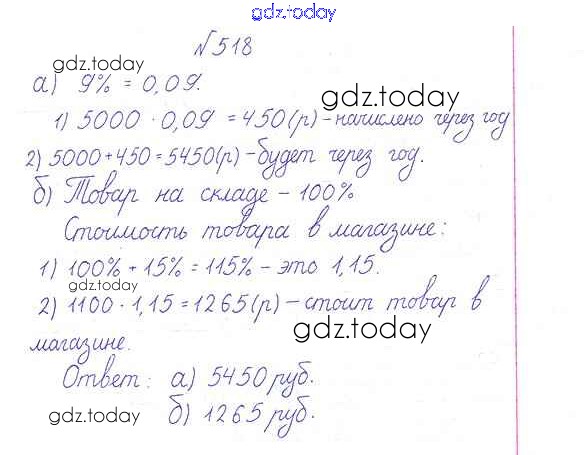 gdz.today
№518
gdz.today
а) 9% = 0,09.
gdz.today
1) 5000 · 0,09 = 450(р) - начислено через год
2) 5000 + 450 = 5450(р) - будет через год.
б) Товар на складе - 100%
Стоимость товара в магазине:
1) 100% + 15% = 115% - это 1,15.
gdz.today
2) 1100 · 1,15 = 1265(р) - стоит товар в
gdz.today
магазине.
Ответ: а) 5450 руб.
gdz.today
б) 1265 руб.